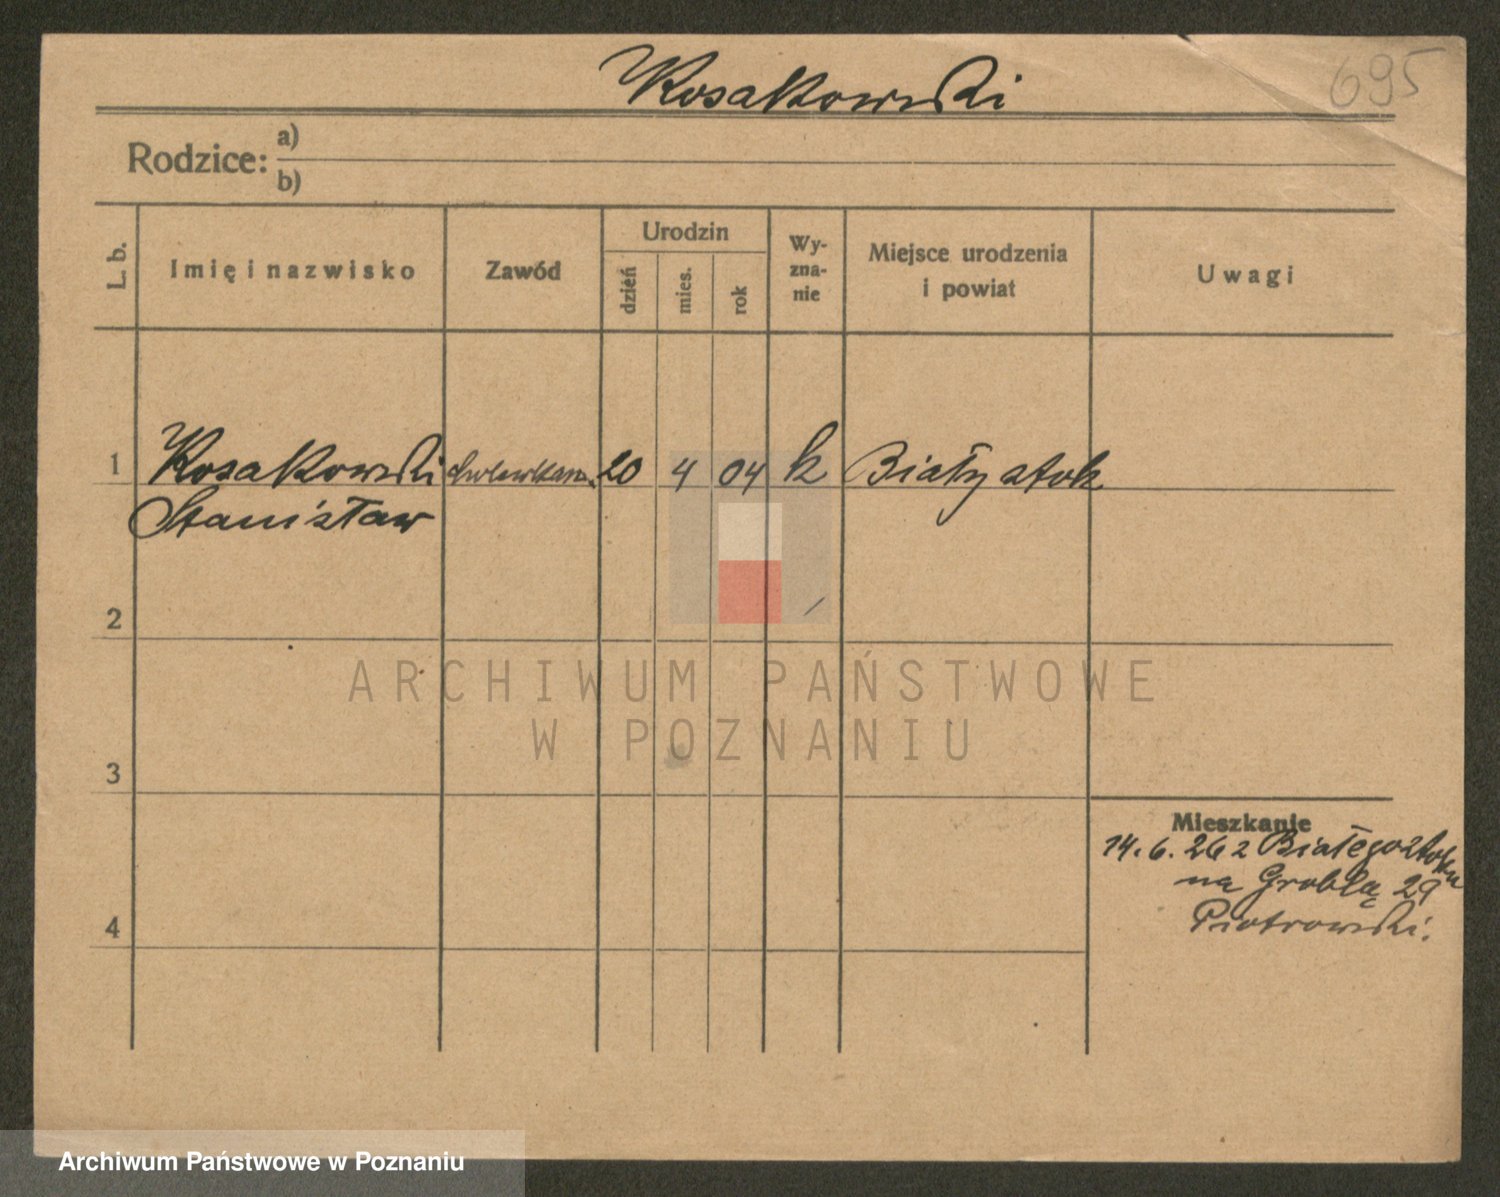 Kosakowski
695
Rodzice: a)
b)
L. b.
Imię i nazwisko
Zawód
Urodzin
dzień
mies.
rok
Wy-
zna-
nie
Miejsce urodzenia
i powiat
Uwagi
1 Kosakowski 20 4 04 k Białystok
Stanisław
2
3
4
Mieszkanie
14. 6. 26 z Białegostoku
na Groblą 29
Piotrowski.
ARCHIWUM PAŃSTWOWE
W POZNANIU
Archiwum Państwowe w Poznaniu